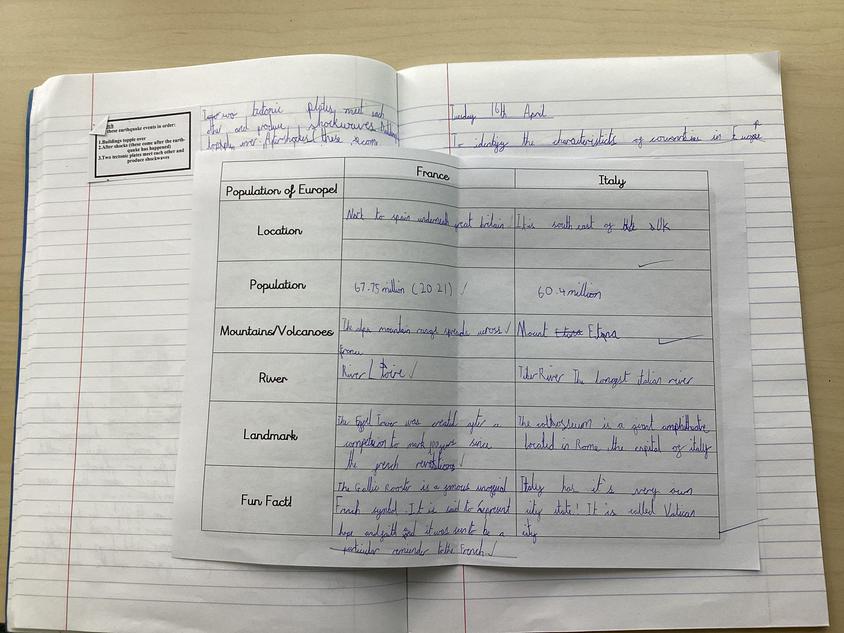 these earthquake events in order:
1.Buildings topple over
2.After shocks (these come after the earth-
quake has happened)
3.Two tectonic plates meet each other and
produce shockwaves
two tectonic plates meet each
other and produce shockwaves
over. Aftershocks these
Tuesday 16th April
To identify the characteristics of countries in Europe
France
Italy
Population of Europe!
Location
Next to spain underneath great britain
It is south east of UK
Population
67.75 million (2021)
60.4 million
Mountains/Volcanoes
The alps mountain range spreads across
france
Mount Etna
River
River Loire
Tiber River The longest italian river
Landmark
The Eyfel Tower was created after a
competion to mark 100 years since
the french revoltion
The collosseum is a giant amphitheatre
located in Rome the capital of italy
Fun Fact!
The Gallic Rooster is a famous unoffical
French symbol. It is said to represent
hope and faith and it was sen to be a
particular remunder to the French.
Italy has it's very own
city state! It is called Vatican
city